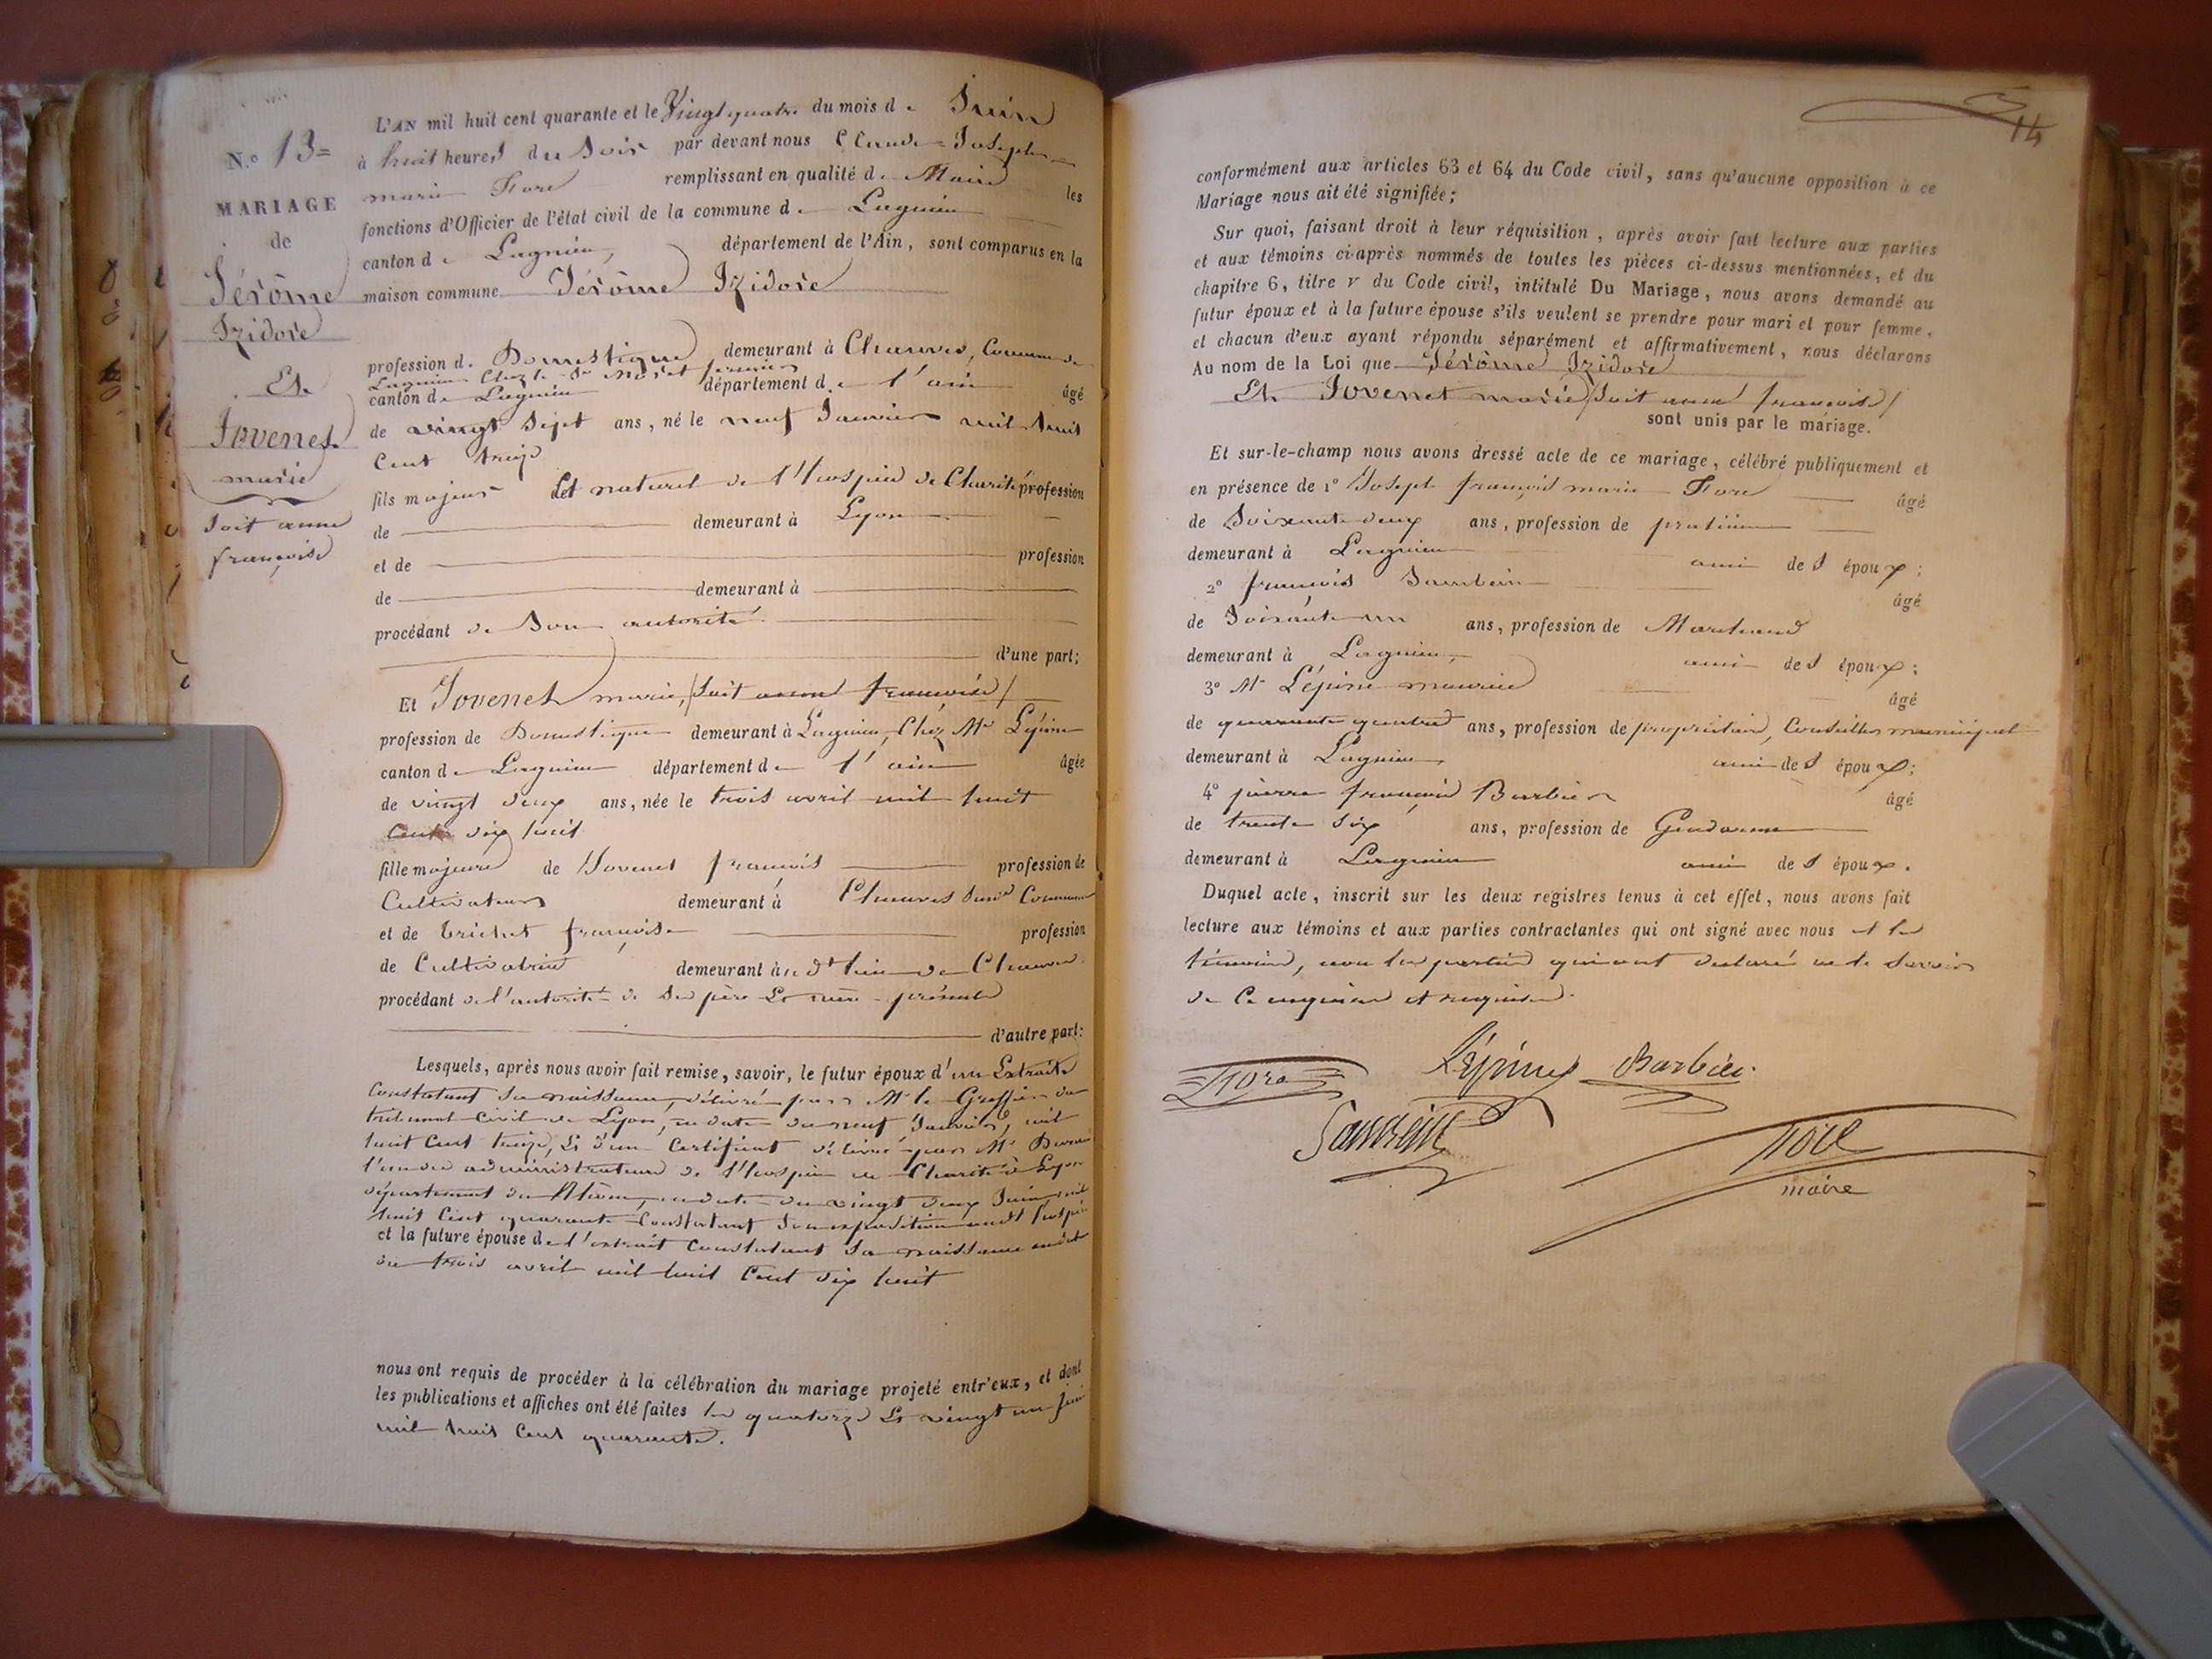 N.º 13=
MARIAGE
de
Jérôme
Izidore
Et
Jovenet
marie
soit anne
françoise
L'AN mil huit cent quarante et le Vingt quatre du mois de Juin
à huit heures du Soir par devant nous Claude=Joseph=
marie Fore remplissant en qualité de Maire les
fonctions d'Officier de l'état civil de la commune de Lagnieu
canton de Lagnieu, département de l'Ain, sont comparus en la
maison commune Jérôme Izidore
profession de Domestique demeurant à Chauves, Commune de
Lagnieu Chez le Sr fermier
canton de Lagnieu département de l'ain âgé
de vingt Sept ans, né le neuf Janvier mil huit
Cent treize
fils majeur Et naturel de l'Hospice de Charité profession
de demeurant à Lyon
et de profession
de demeurant à
procédant de Son autorité
d'une part;
Et Jovenet marie, /soit anne françoise/
profession de Domestique demeurant à Lagnieu, Chez Mr Lépine
canton de Lagnieu département de l'ain âgée
de vingt deux ans, née le trois avril mil huit
Cent dix huit
fille majeure de Jovenet françois profession de
Cultivateur demeurant à Chauves Commune
et de Trichet françoise profession
de Cultivatrice demeurant à de Chauves
procédant de l'autorité de Ses père Et mère présents
d'autre part:
Lesquels, après nous avoir fait remise, savoir, le futur époux d'un Extrait
Constatant Sa naissance, délivré par Mr le Greffier du
tribunal Civil de Lyon, en date du neuf Janvier, mil
huit Cent treize, Et d'un Certificat délivré par Mr
l'un des administrateurs de l'Hospice de Charité à Lyon
département du Rhône, en date du vingt deux Juin mil
huit Cent quarante Constatant Son exposition audt hospice
et la future épouse de l'extrait Constatant Sa naissance en date
du trois avril mil huit Cent dix huit
nous ont requis de procéder à la célébration du mariage projeté entr'eux, et dont
les publications et affiches ont été faites les quatorze Et vingt un Juin
mil huit Cent quarante.
14
conformément aux articles 63 et 64 du Code civil, sans qu'aucune opposition à ce
Mariage nous ait été signifiée;
Sur quoi, faisant droit à leur réquisition, après avoir fait lecture aux parties
et aux témoins ci-après nommés de toutes les pièces ci-dessus mentionnées, et du
chapitre 6, titre v du Code civil, intitulé Du Mariage, nous avons demandé au
futur époux et à la future épouse s'ils veulent se prendre pour mari et pour femme,
et chacun d'eux ayant répondu séparément et affirmativement, nous déclarons
Au nom de la Loi que Jérôme Izidore
Et Jovenet marie /soit anne françoise/
sont unis par le mariage.
Et sur-le-champ nous avons dressé acte de ce mariage, célébré publiquement et
en présence de 1º Joseph françois marie Fore âgé
de Soixante deux ans, profession de praticien
demeurant à Lagnieu ami des époux;
2º françois Sambein âgé
de Soixante un ans, profession de Marchand
demeurant à Lagnieu, ami des époux;
3º Mr Lépine maurice âgé
de quarante quatre ans, profession de propriétaire, Conseiller municipal
demeurant à Lagnieu, ami des époux;
4º pierre françois Barbier âgé
de trente Six ans, profession de Gendarme
demeurant à Lagnieu ami des époux.
Duquel acte, inscrit sur les deux registres tenus à cet effet, nous avons fait
lecture aux témoins et aux parties contractantes qui ont signé avec nous et les
témoins, non les parties qui ont déclaré ne le Savoir
de Ce enquises et requises.
Fore Lépine Barbier
Fore
maire